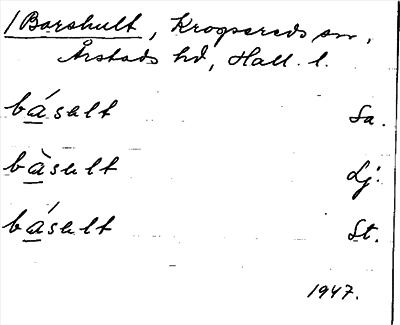 /Barshult, Krogsereds sn,
Årstads hd, Hall. l.
bá̱sult Sa.
bà̱sult Lj.
bá̱sult St.
1947.